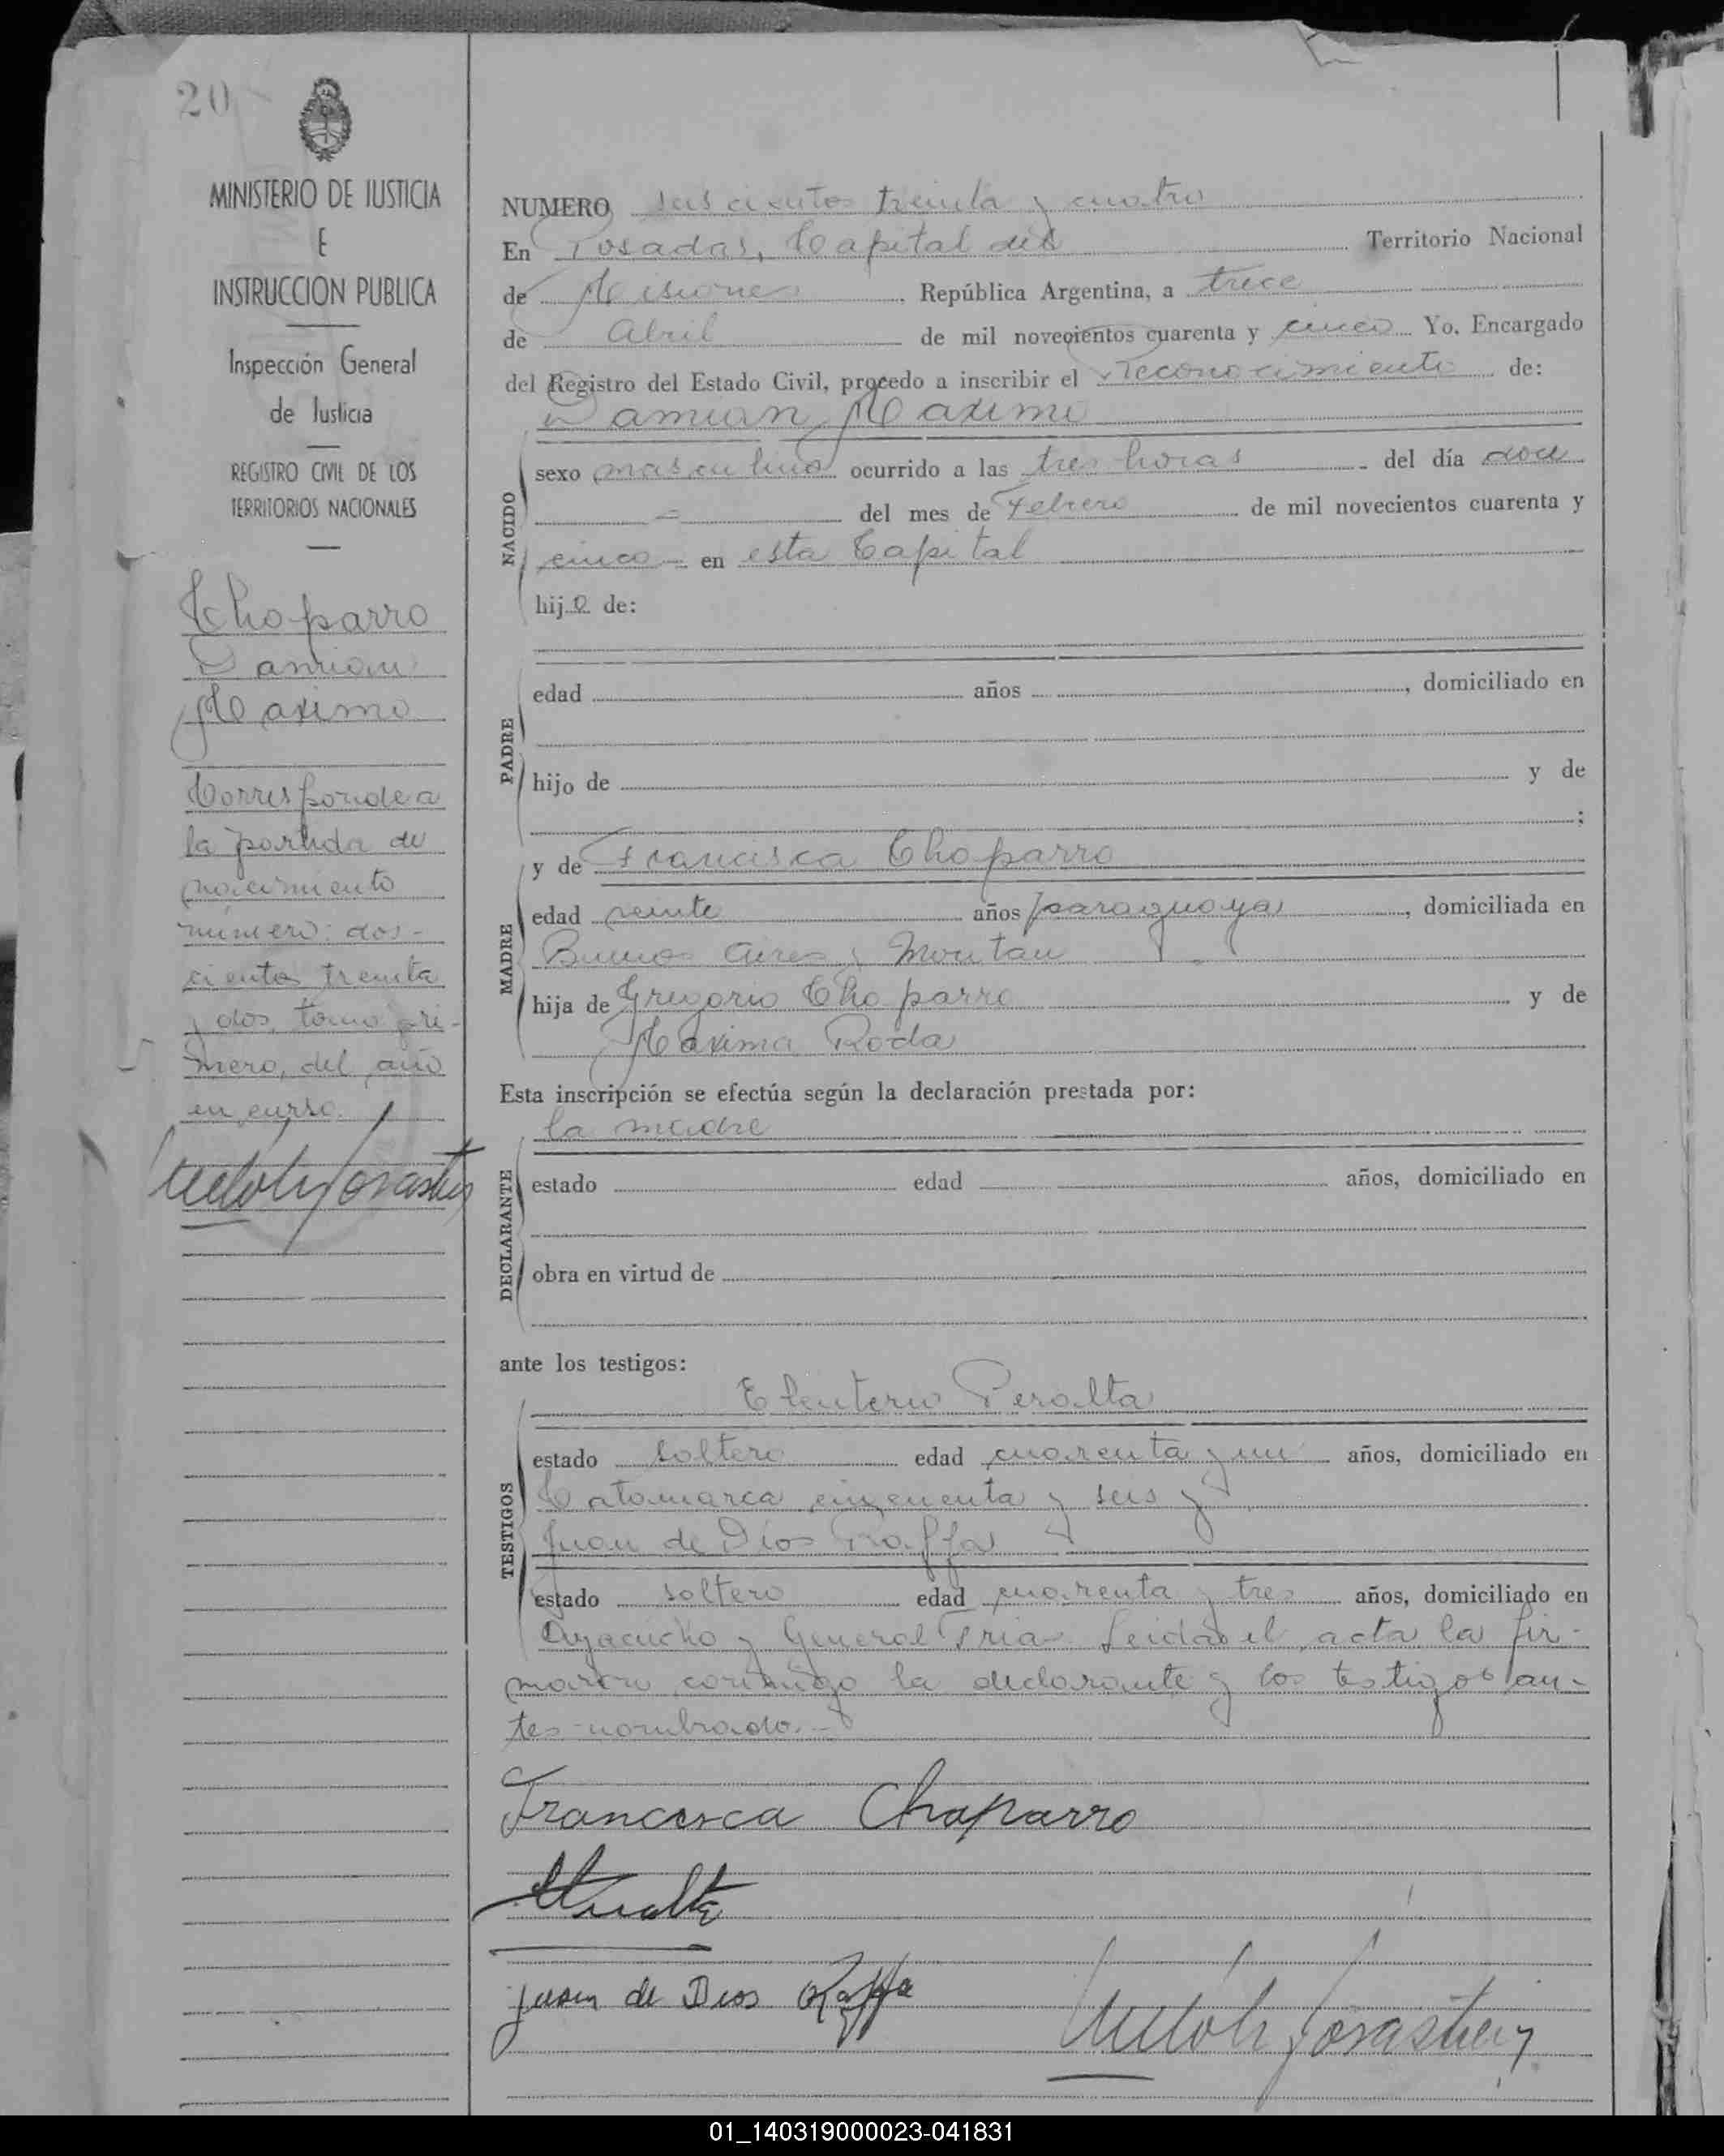 20
MINISTERIO DE JUSTICIA
E
INSTRUCCION PUBLICA
Inspección General
de Justicia
REGISTRO CIVIL DE LOS
TERRITORIOS NACIONALES
Chaparro
Damian
Maximo
Corresponde a
la partida de
nacimiento
número: dos-
cientos treinta
y dos, tomo pri-
mero, del año
en curso.
NUMERO seis cientos treinta y cuatro
En Posadas, Capital del Territorio Nacional
de Misiones, República Argentina, a trece
de Abril de mil novecientos cuarenta y cinco Yo, Encargado
del Registro del Estado Civil, procedo a inscribir el Reconocimiento de:
Damian Maximo
NACIDO
sexo masculino ocurrido a las tres horas del día doce
= del mes de Febrero de mil novecientos cuarenta y
cinco en esta Capital
hijo de:
PADRE
edad años , domiciliado en
hijo de y de
;
MADRE
y de Francisca Chaparro
edad veinte años paraguaya, domiciliada en
Buenos Aires y
hija de Gregorio Chaparro y de
Maxima Roda
Esta inscripción se efectúa según la declaración prestada por:
la madre
DECLARANTE
estado edad años, domiciliado en
obra en virtud de
ante los testigos:
TESTIGOS
Eleuterio Peralta
estado soltero edad cuarenta y un años, domiciliado en
Catamarca cincuenta y seis y
Juan de Dios Raffa
estado soltero edad cuarenta y tres años, domiciliado en
Ayacucho y General Frias Leida el acta la fir-
maron conmigo la declarante y los testigos an-
tes nombrado.-
Francisca Chaparro
Juan de Dios Raffa
01_140319000023-041831